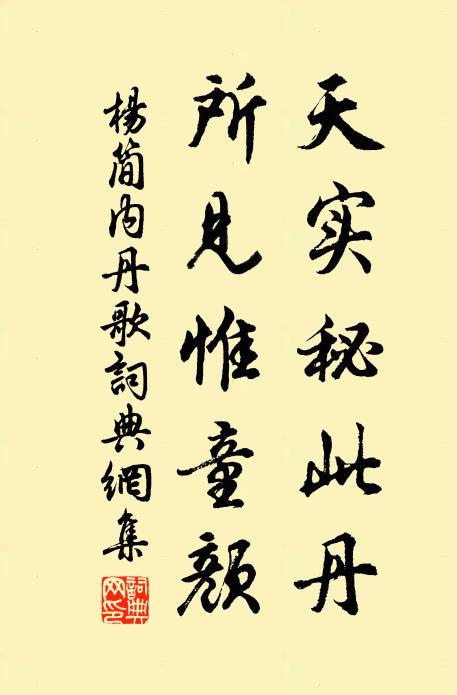 天实秘此丹
所见惟童颜
杨简内丹歌词典網集
詞典网印